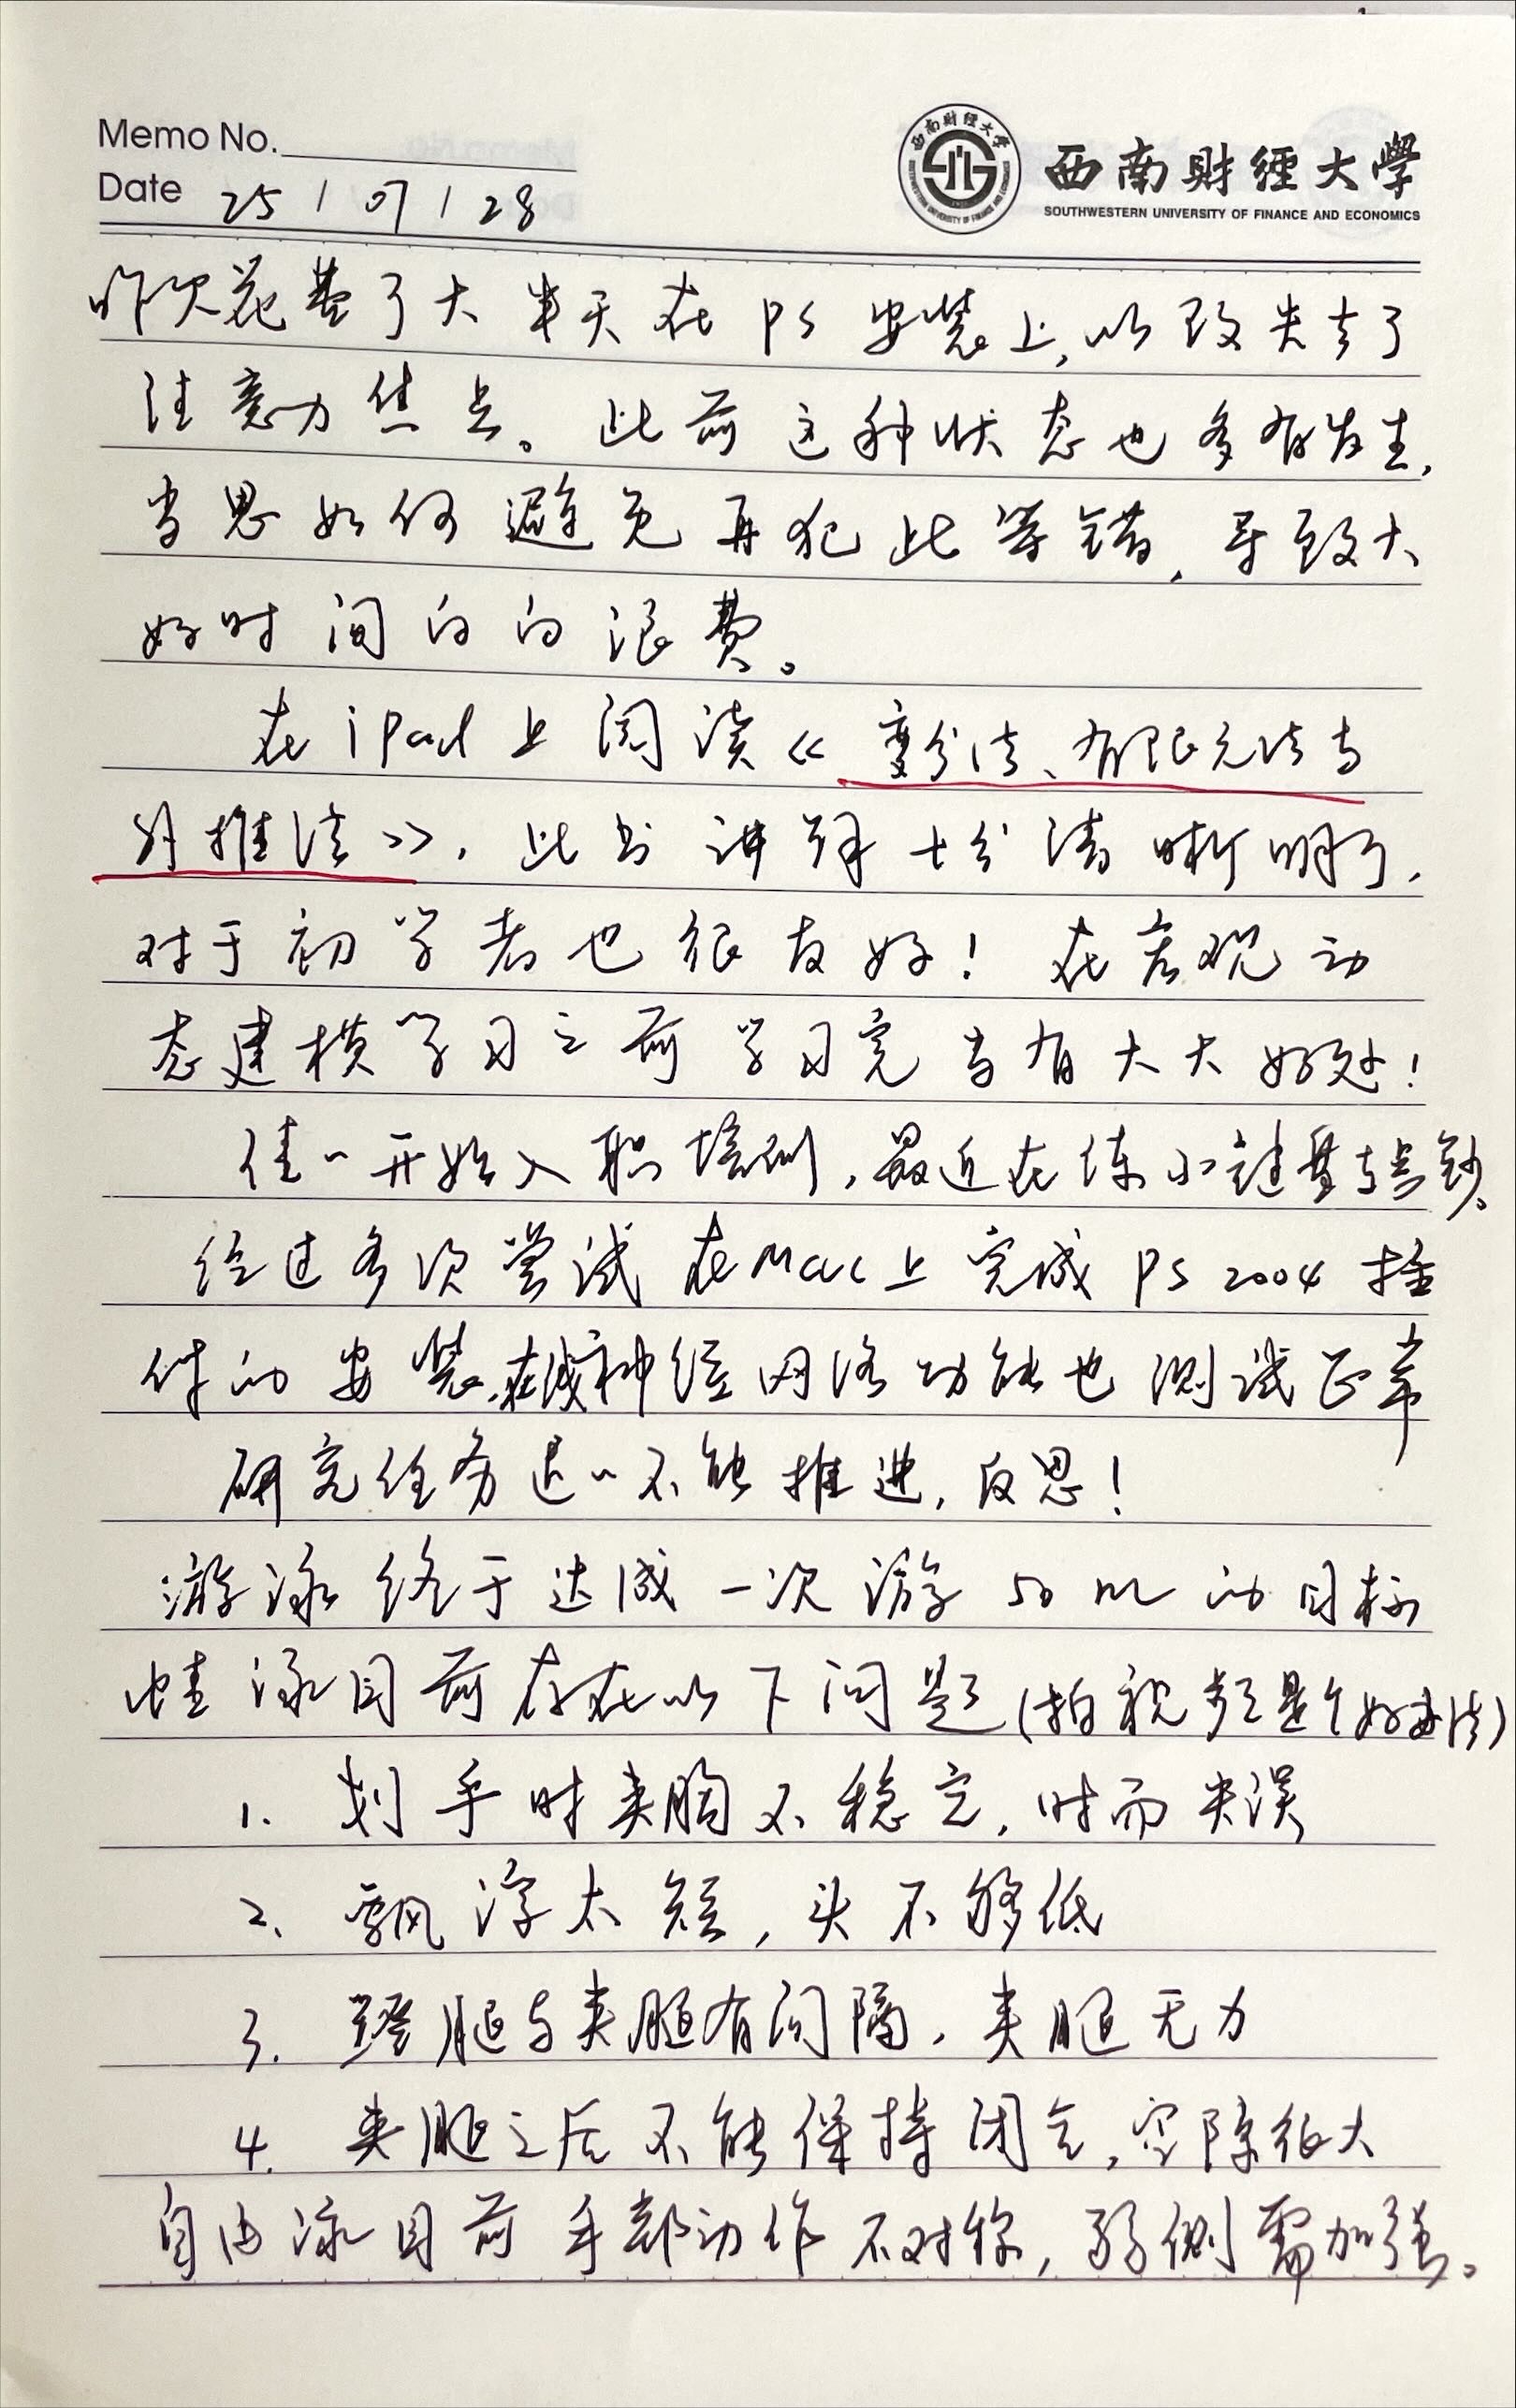 Memo No.
西南财经大学
西南財經大學
SOUTHWESTERN UNIVERSITY OF FINANCE AND ECONOMICS
Date 25 / 07 / 28
昨天花费了大半天在PS安装上,以致失去了
注意力焦点。此前这种状态也多有发生,
当思如何避免再犯此等错,导致大
好时间白白浪费。
在iPad上阅读《变分法、有限元法与
外推法》,此书讲解十分清晰明了,
对于初学者也很友好!在宏观动
态建模学习之前学习完当有大大好处!
佳一开始入职培训,最近在练小键盘与点钞。
经过多次尝试在Mac上完成PS 2004 插
件的安装,在线神经网络功能也测试正常
研究任务迟迟不能推进,反思!
游泳终于达成一次游50m的目标
蛙泳目前存在以下问题(拍视频是个好办法)
1. 划手时夹胸不稳定,时而失误
2. 飘浮太短,头不够低
3. 蹬腿与夹腿有间隔,夹腿无力
4. 夹腿之后不能保持闭合,空隙很大
自由泳目前手部动作不对称,弱侧需加强。